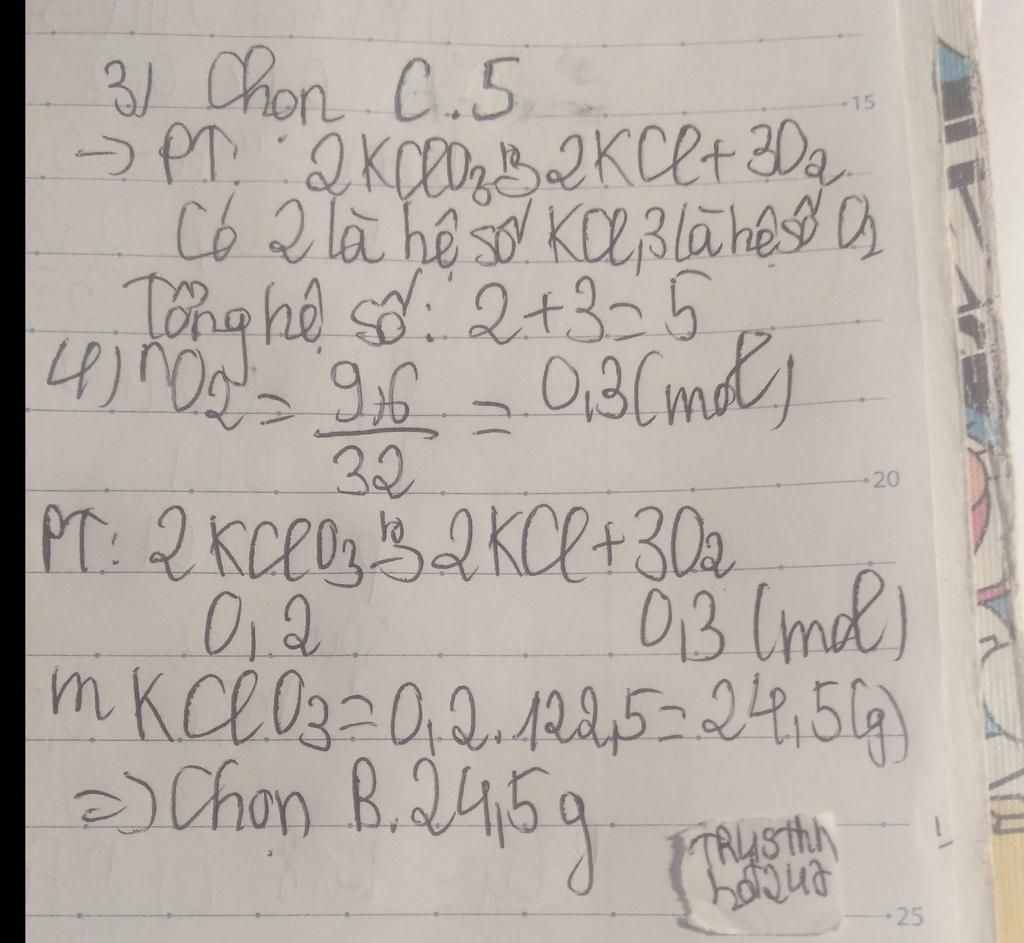 3) Chon C.5
15
→ PT: 2KClO3 → 2KCl + 3O2
Có 2 là hệ số KCl, 3 là hệ số O2
Tổng hệ số: 2+3=5
4) nO2 = 9,6/32 = 0,3 (mol)
20
PT: 2KClO3 → 2KCl + 3O2
0,2 0,3 (mol)
mKClO3 = 0,2.122,5 = 24,5(g)
=> Chon B. 24,5g
25